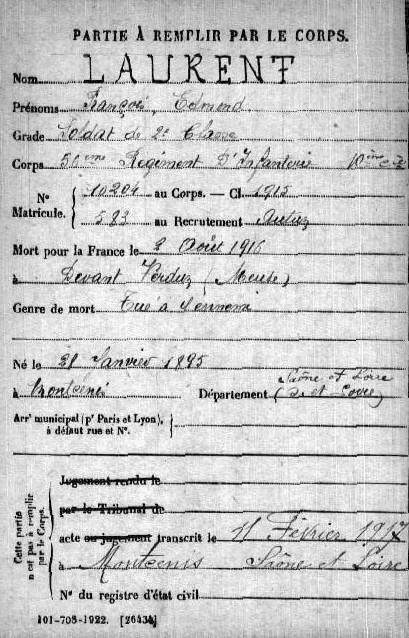 PARTIE À REMPLIR PAR LE CORPS.
Nom LAURENT
Prénoms François, Edmond
Grade Soldat de 2e Classe
Corps 50ème Régiment d'Infanterie 10ème Cie
N° Matricule. { 10204 au Corps. — Cl. 1915
583 au Recrutement Autun
Mort pour la France le 2 Août 1916
à Devant Verdun (Meuse)
Genre de mort Tué à l'ennemi
Né le 28 Janvier 1895
à Montcenis Département Saône et Loire
(S. et Loire)
Arrt municipal (pr Paris et Lyon), à défaut rue et N°.
Cette partie n'est pas à remplir par le Corps.
Jugement rendu le
par le Tribunal de
acte ou jugement transcrit le 11 Février 1917
à Montcenis Saône et Loire
N° du registre d'état civil
101-708-1922. [26434]